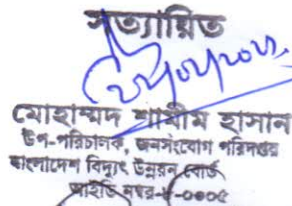 সত্যায়িত
মোহাম্মদ শামীম হাসান
উপ-পরিচালক, জনসংযোগ পরিদপ্তর
বাংলাদেশ বিদ্যুৎ উন্নয়ন বোর্ড
আইডি নম্বর-১-০০০৫